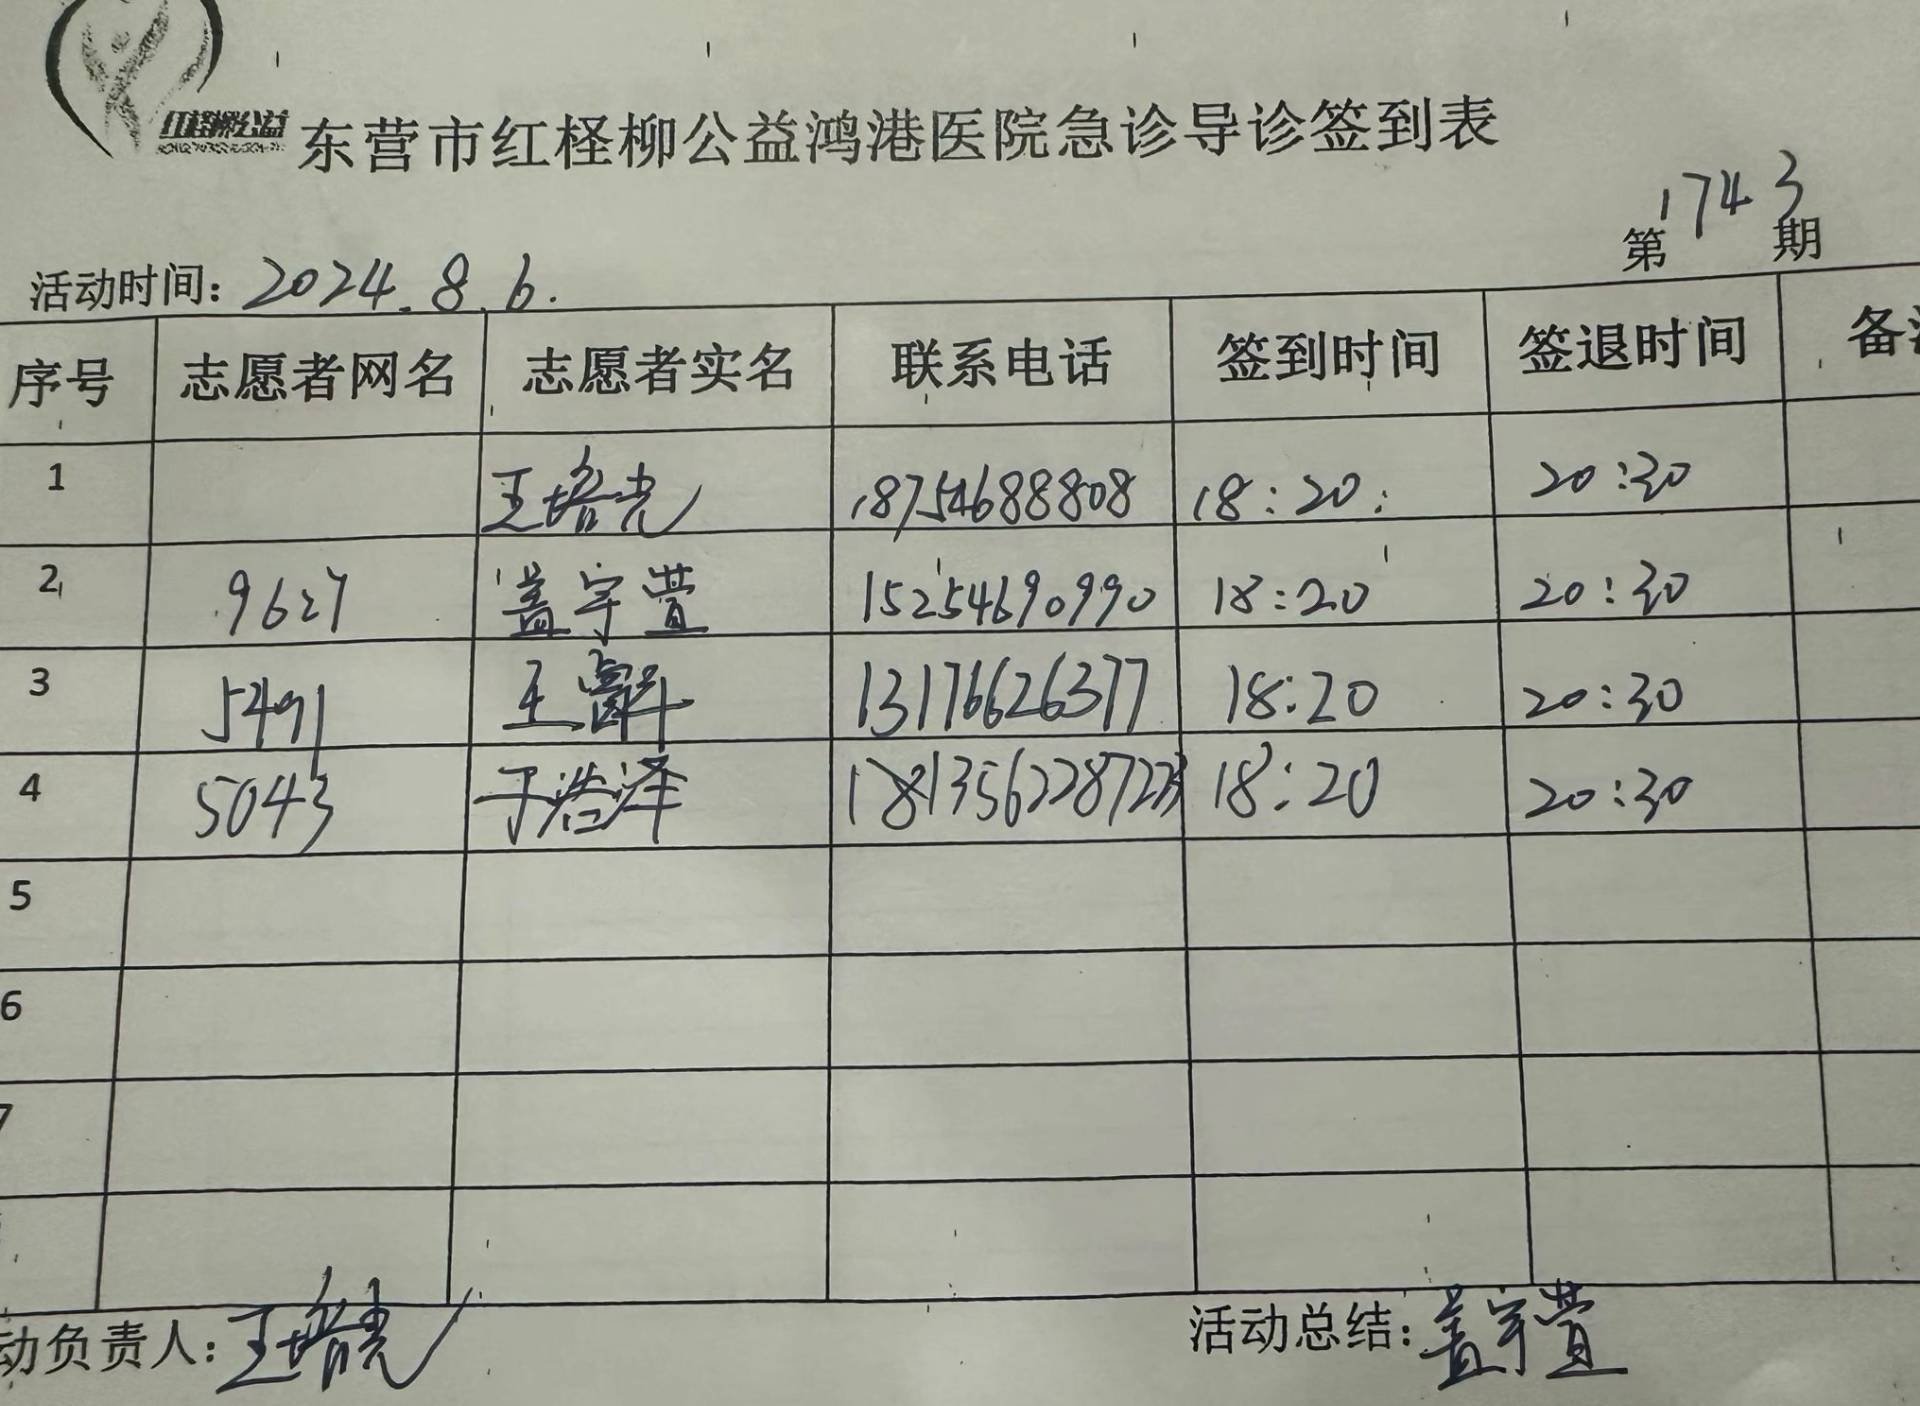 红柽柳公益
东营市红柽柳公益鸿港医院急诊导诊签到表
第1743期
活动时间：2024.8.6.
序号 志愿者网名 志愿者实名 联系电话 签到时间 签退时间 备
1 王培光 18754688808 18:20: 20:30
2 9627 盖宇萱 15254690990 18:20 20:30
3 5491 王 13176626377 18:20 20:30
4 5043 于浩泽 18:20 20:30
5
6
7
动负责人：王培光 活动总结：盖宇萱